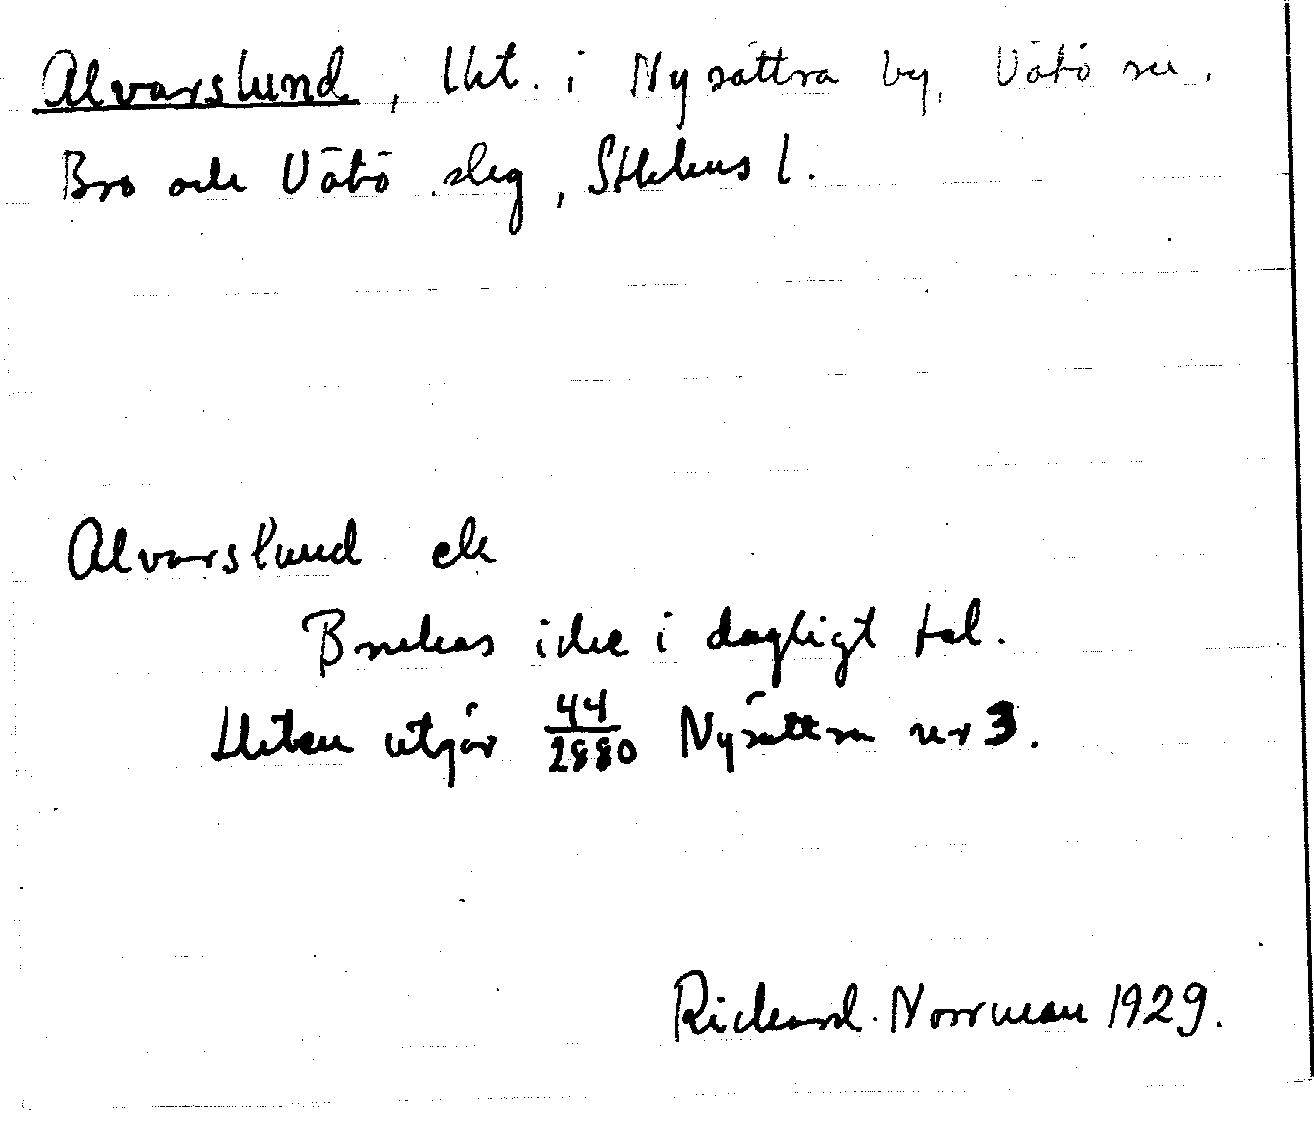 Alvarslund, lht. i Nysättra by, Vätö sn.
Bro och Vätö slg, Sthlms l.
Alvarslund eh
Brukas icke i dagligt tal.
Lheten utgör 44/2880 Nysättra nr 3.
Rickard Norrman 1929.